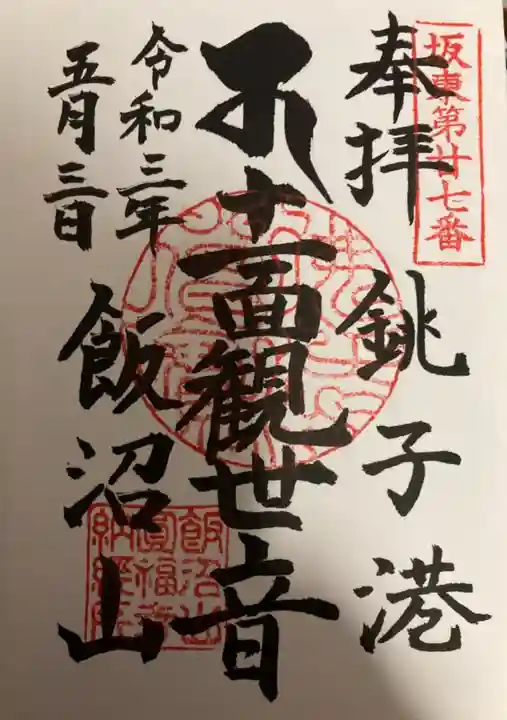 坂東第廿七番
奉拝 銚子港
十一面観世音
飯沼山
令和三年
五月三日
飯沼山
圓福寺
納経所